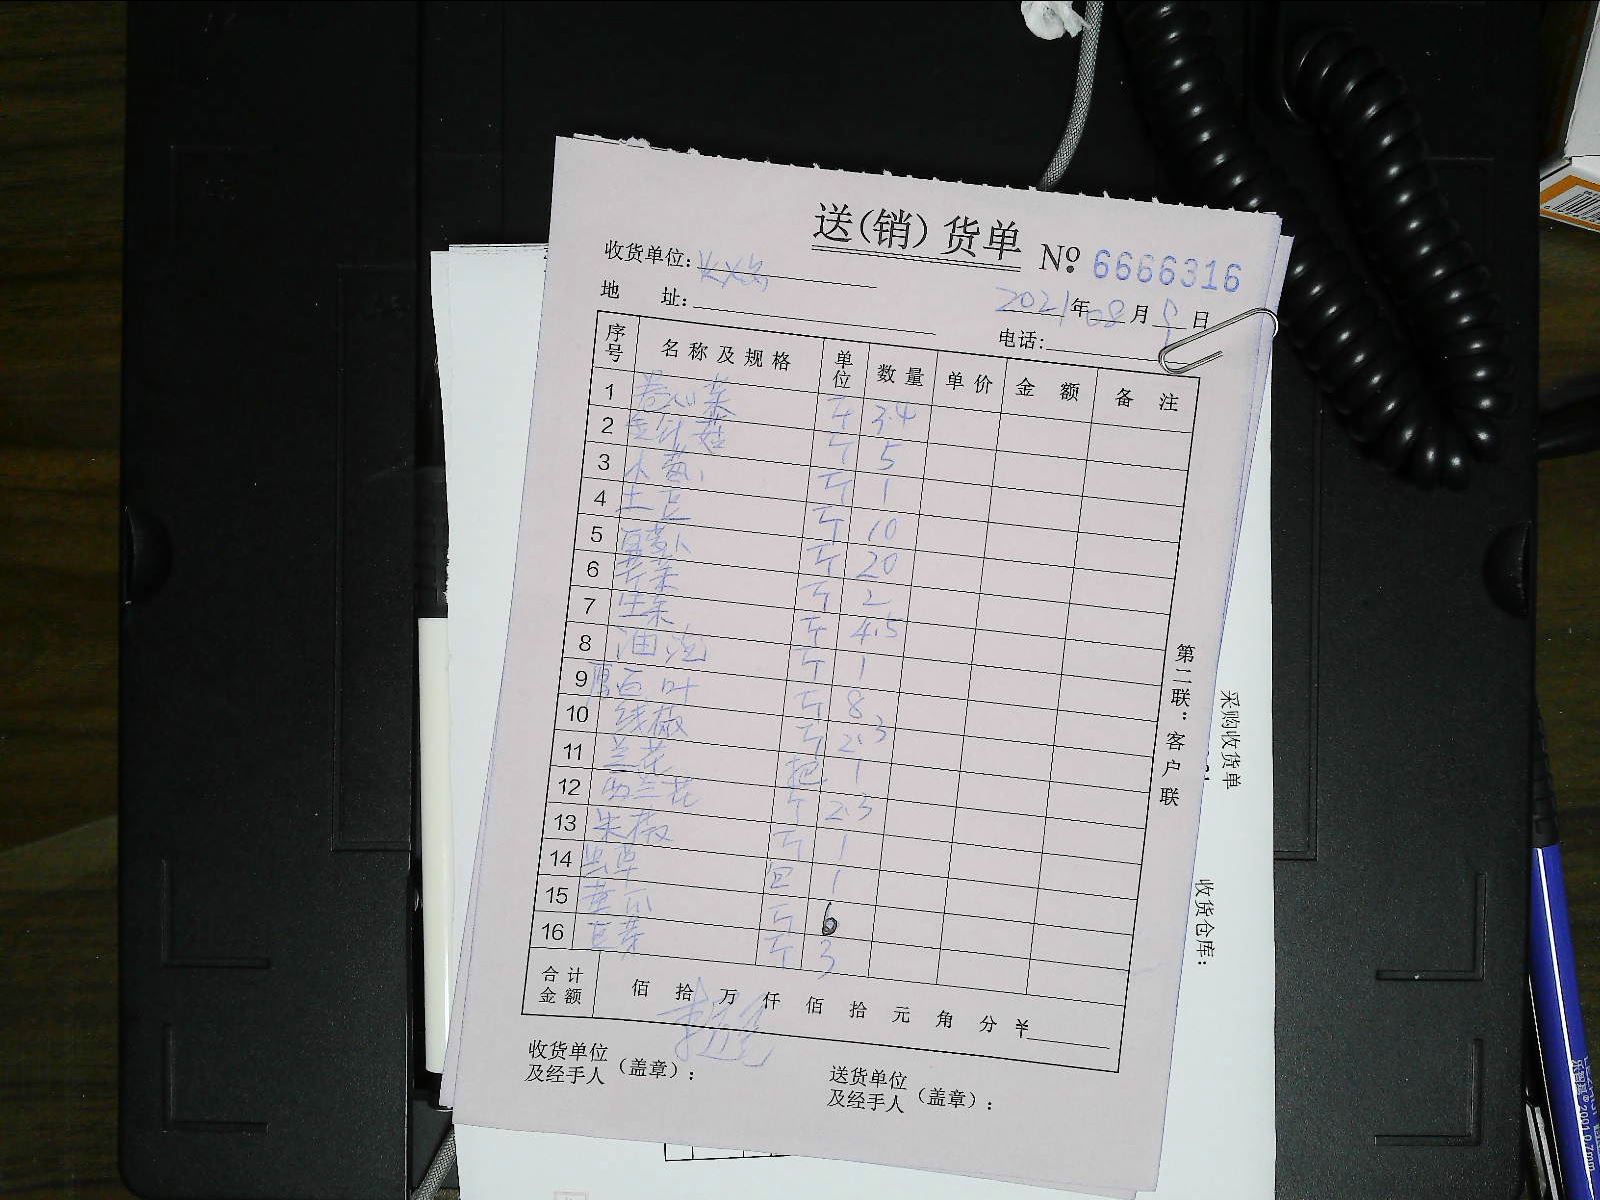 送(销)货单
No. 6666316
收货单位:
2021年08月5日
地 址:
电话:
序号 名称及规格 单位 数量 单价 金额 备注
1 卷心菜 斤 3.4
2 金针菇 斤 5
3 小葱 斤 1
4 土豆 斤 10
5 斤 20
6 芹菜 斤 2
7 生菜 斤 4.5
8 油泡 斤 1
9 厚百叶 斤 8
10 线椒 斤 2.3
11 兰花 把 1
12 西兰花 斤 2.3
13 朱椒 斤 1
14 虫草 包 1
15 黄瓜 斤 6
16 豆芽 斤 3
合计金额 佰 拾 万 仟 佰 拾 元 角 分 ¥
收货单位及经手人(盖章):
送货单位及经手人(盖章):
第二联:客户联
采购收货单
收货仓库: